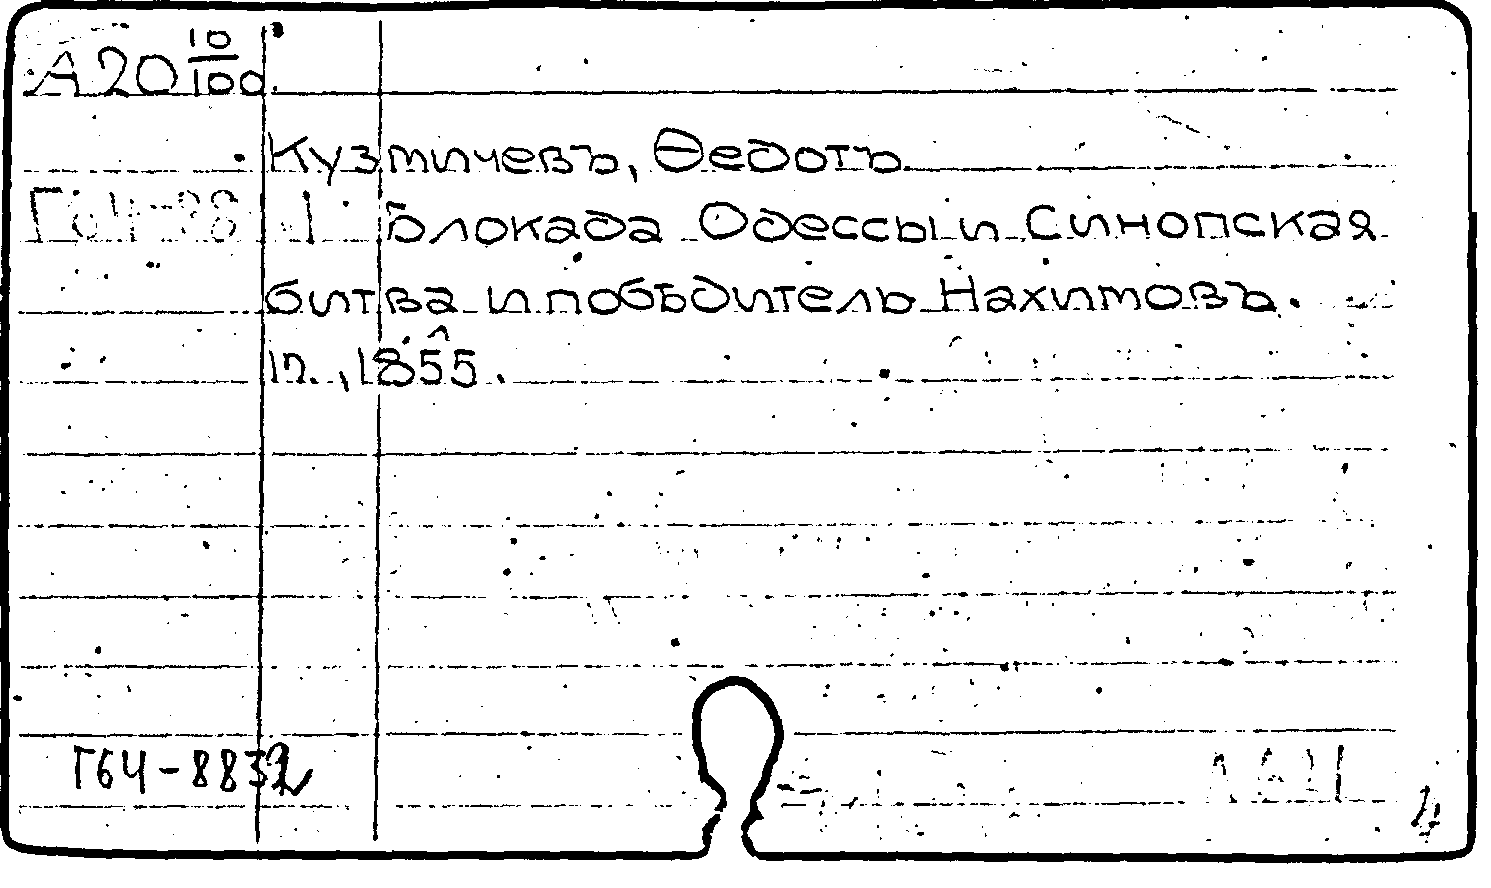 А 20 10/100
Кузмичевъ, Ѳедотъ.
Блокада Одессы и Синопская
битва и побѣдитель Нахимовъ.
М., 1855.
Г64-8832
4